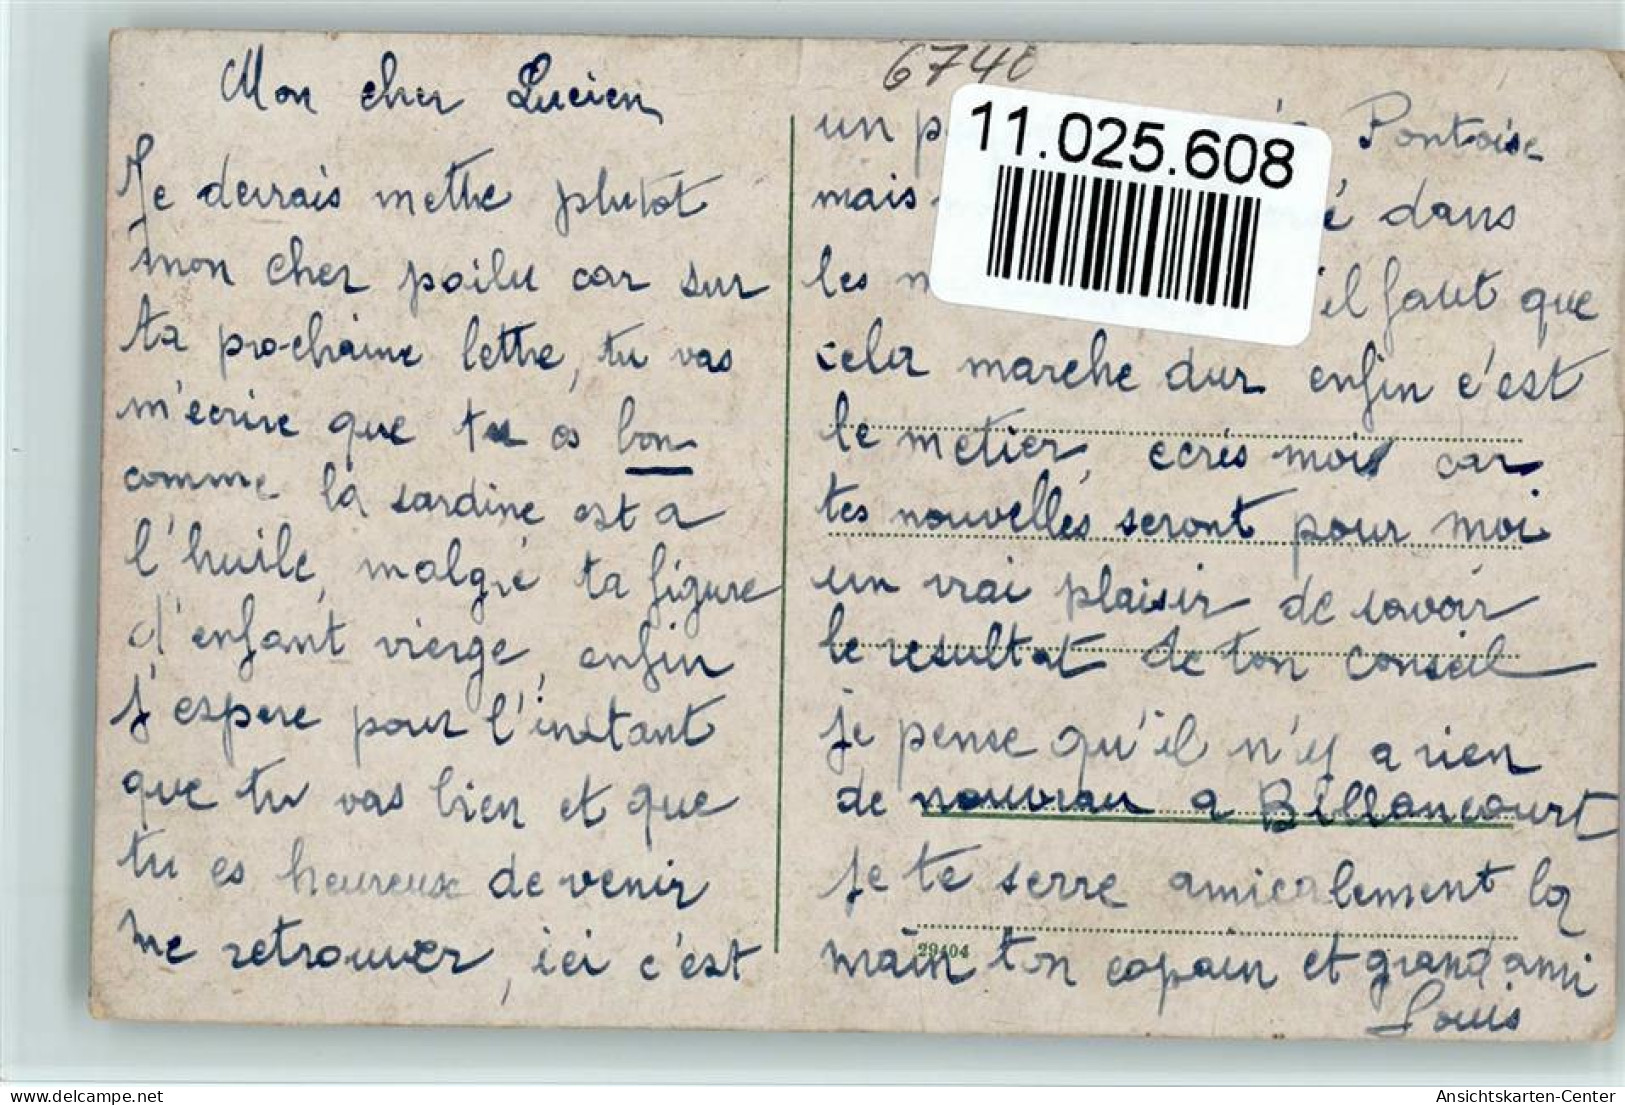 Mon cher Lucien
Je devrais mettre plutot
mon cher poilu car sur
ta prochaine lettre, tu vas
m'ecrire que tu es bon
comme la sardine est a
l'huile, malgré ta figure
d'enfant vierge, enfin
j'espere pour l'instant
que tu vas bien et que
tu es heureux de venir
me retrouver, ici c'est
6740
11.025.608
un Pontoise
mais dans
les il faut que
cela marche dur enfin c'est
le metier, ecris moi car
tes nouvelles seront pour moi
un vrai plaisir de savoir
le resultat de ton conseil
je pense qu'il n'y a rien
de nouveau a Billancourt
je te serre amicalement la
main ton copain et grand ami
Louis
29404
www.delcampe.net
Ansichtskarten-Center